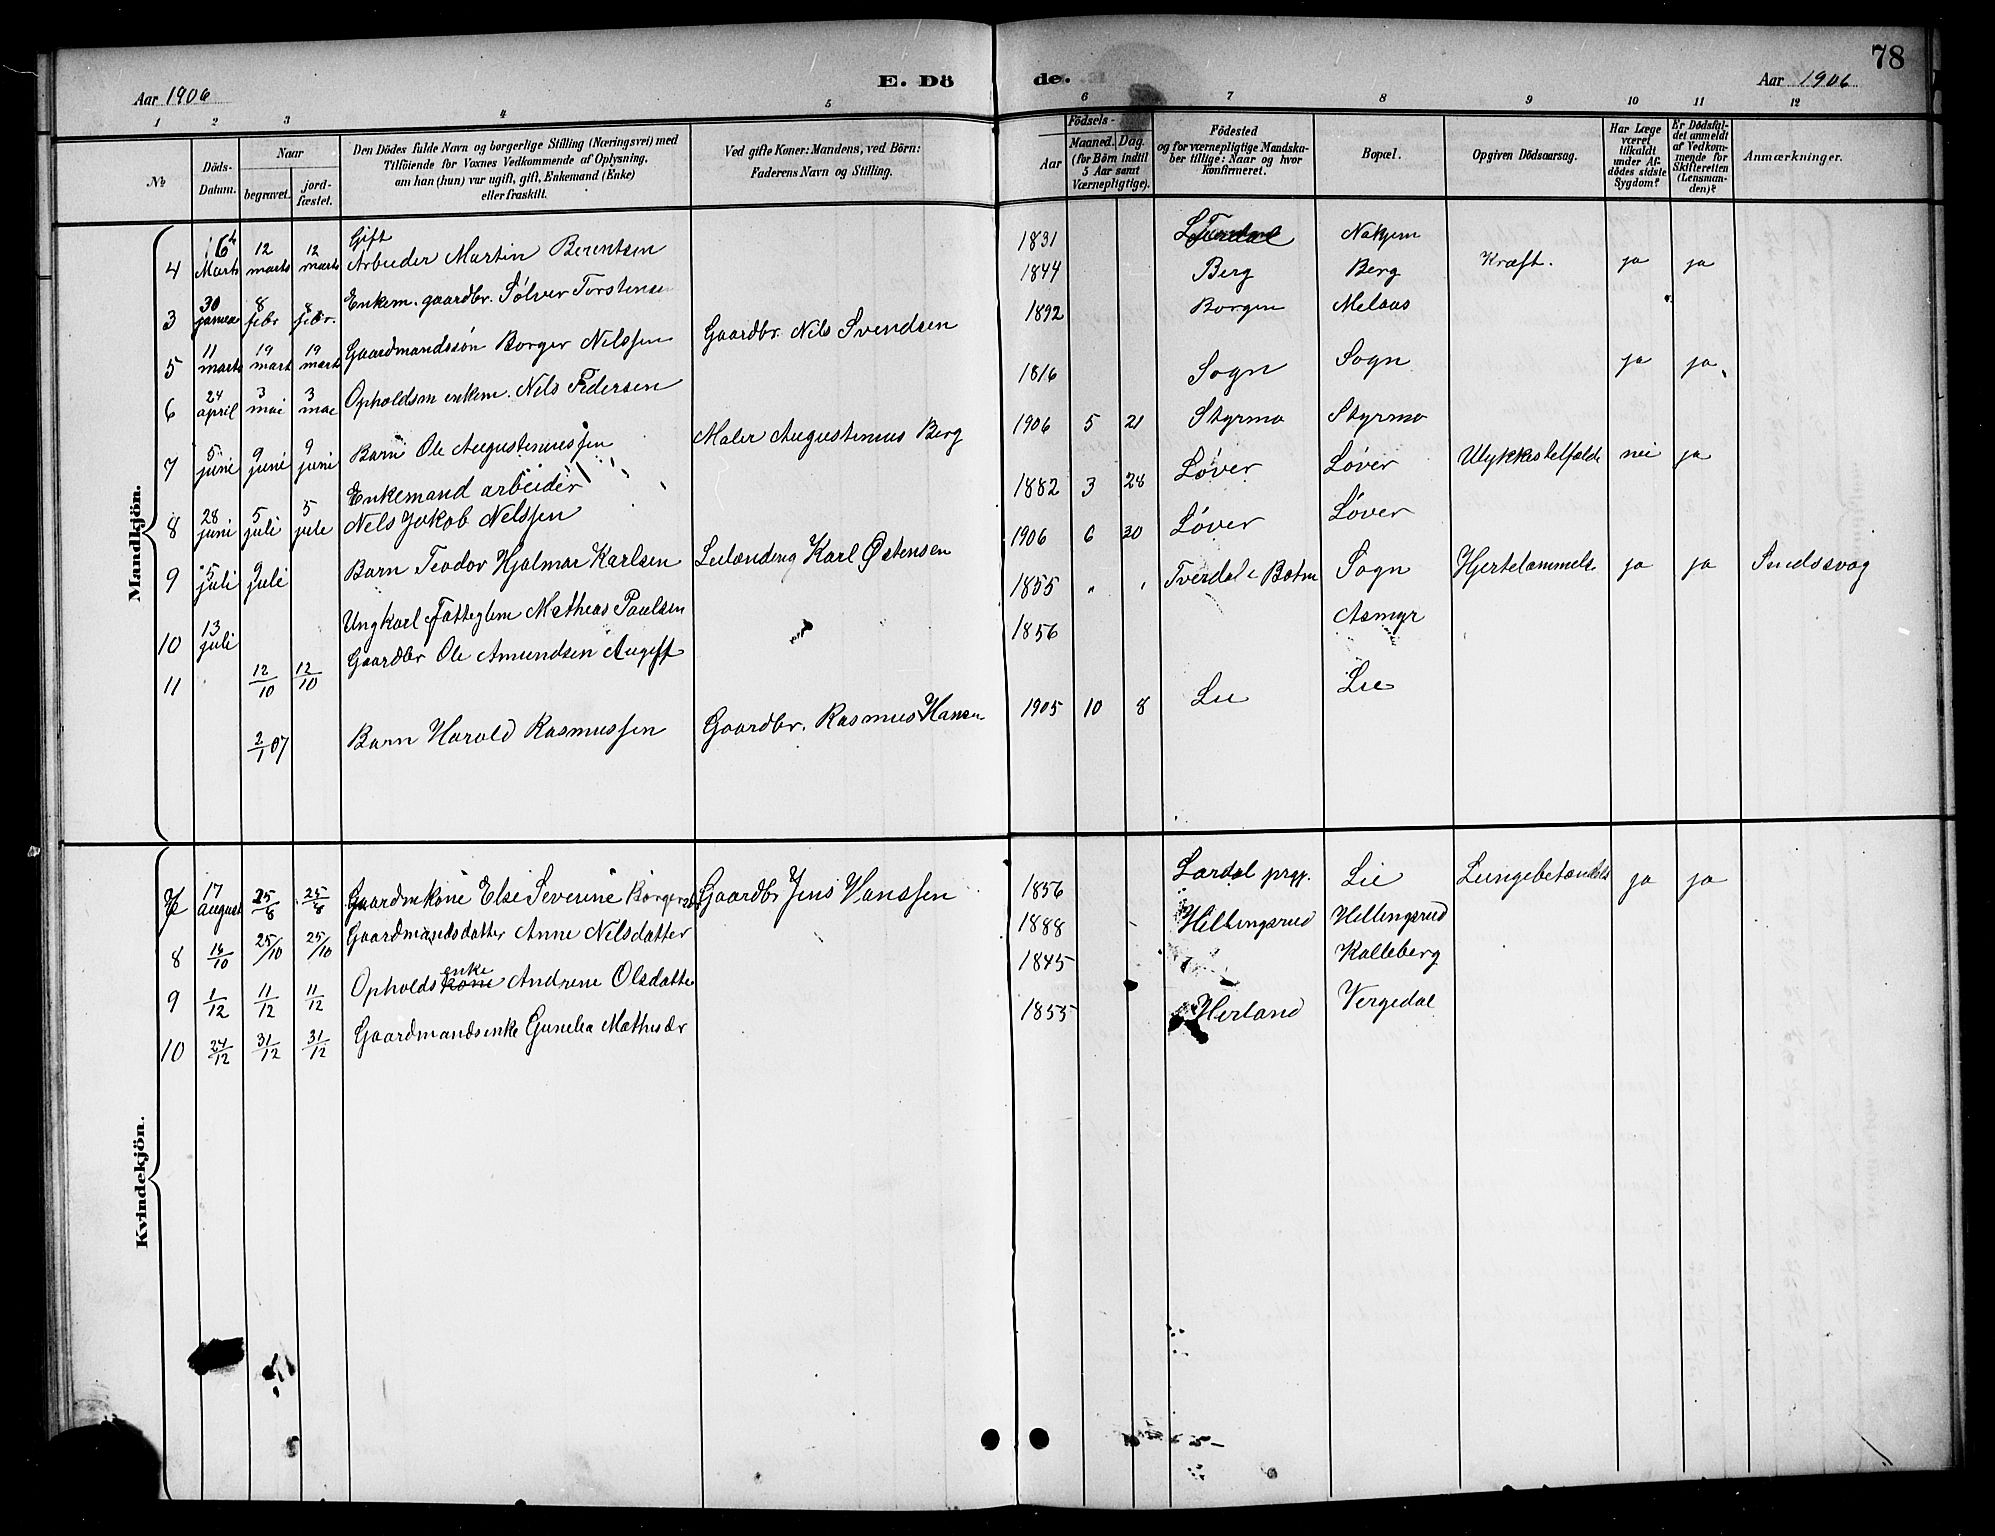 78
Aar 1906
E. Dö
de.
Aar 1906
1 2 3 4 5 6 7 8 9 10 11 12
No
Döds-
Datum.
Naar
begravet.
jord-
fæstet.
Den Dödes fulde Navn og borgerlige Stilling (Næringsvei) med
Tilföiende for Voxnes Vedkommende af Oplysning,
om han (hun) var ugift, gift, Enkemand (Enke)
eller fraskilt.
Ved gifte Koner: Mandens, ved Börn:
Faderens Navn og Stilling.
Födsels-
Aar
Maaned.
Dag.
(for Börn indtil
5 Aar samt
Værnepligtige).
Födested
og for værnepligtige Mandska-
ber tillige: Naar og hvor
konfirmeret.
Bopæl.
Opgiven Dödsaarsag.
Har Læge
været
tilkaldt
under Af-
dödes sidste
Sygdom?
Er Dödsfal-
det anmeldt
af Vedkom-
mende for
Skifteretten
(Lensman-
den)?
Anmærkninger.
Mandkjön.
Gift
4 Marts 12 marts 12 marts Arbeider Martin Berentsen 1831 Nakjem
3 30 januar 8 febr 8 febr. Enkem. gaardbr. Sølver Torstense 1844 Berg Berg Kræft. ja ja
5 11 marts 19 mart 19 mart Gaardmandssøn Borger Nilssen Gaardbr. Nils Svendsen 1892 Borgen Melaas
6 24 april 3 mai 3 mai Opholdsm enkem. Nils Pedersen 1816 Sogn Sogn ja ja
7 5 juni 9 juni 9 juni Barn Ole Augustinussen Maler Augustinius Berg 1906 5 21 Styrmo Styrmo
Enkemand arbeider
8 28 juni 5 juli 5 juli Nels Jakob Nelssen 1882 3 28 Løver Løver Ulykkestelfælde nei ja
9 5 juli 9 juli Barn Teodor Hjalmar Karlsen Leilænding Karl Østensen 1906 6 30 Løver Løver
10 13 juli Ungkarl Fatteglem Mathias Paulsen 1855 " " Tverdal i Botne Sogn Hjertelammels. ja ja Sindssvag
11 12/10 12/10 Gaardbr Ole Amundsen 1856 Asmyr
2/1 07 Barn Harald Rasmussen Gaardbr. Rasmus Hansen 1905 10 8 Lie Lie
Kvindekjön.
7 17 august 25/8 25/8 Gaardmkone Else Severine Gaardbr Jens Hanssen 1856 Lardal prgj. Lie Lungebetændels ja ja
8 16/10 25/10 25/10 Gaardmandsdatter Anne Nilsdatter 1888 Hillingsrud Hillingsrud
enke
9 1/12 11/12 11/12 Opholdskone Andrine Olsdatte 1845 Kalleberg
10 24/12 31/12 31/12 Gaardmandsenke Mathisdr 1855 Herland Vergedal